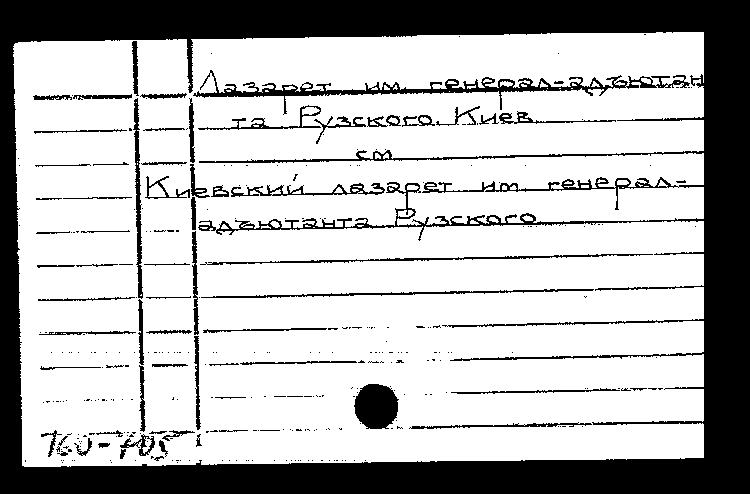 Лазарет им. генерал-адъютан
та Рузского. Киев
см
Киевский лазарет им. генерал-
адъютанта Рузского
160-705